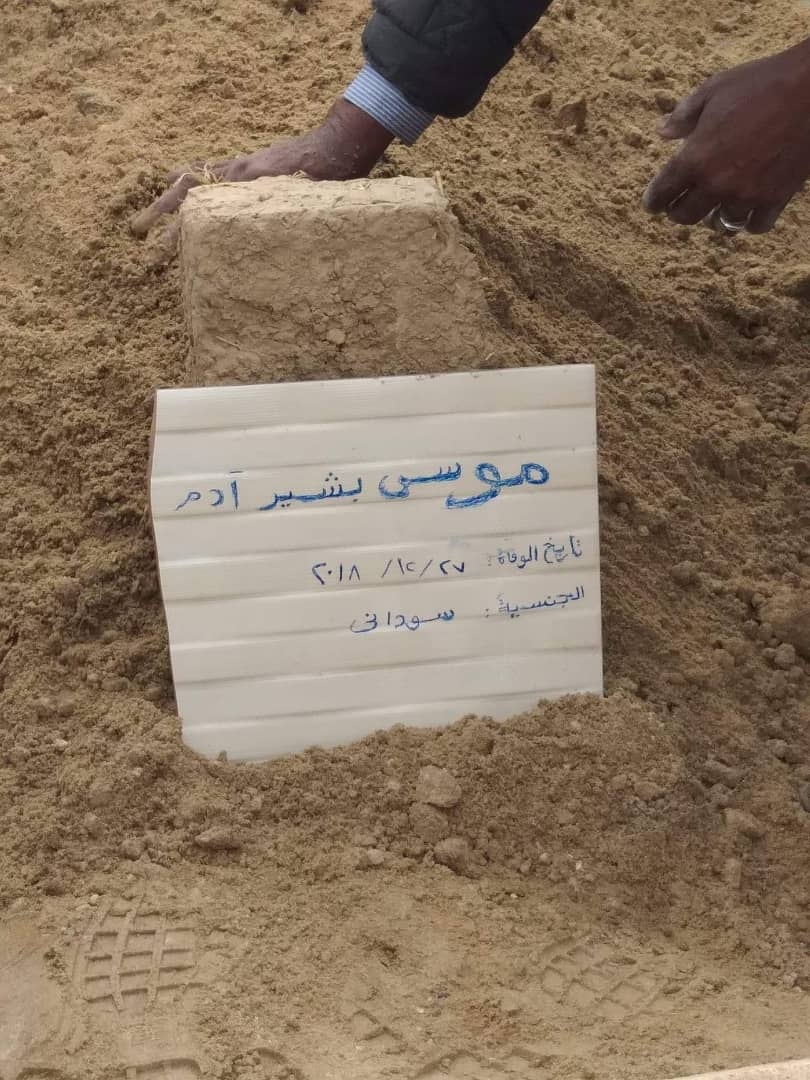 موسى بشير آدم
تاريخ الوفاة: ٢٧/ ١٢/ ٢٠١٨
الجنسية: سودانى